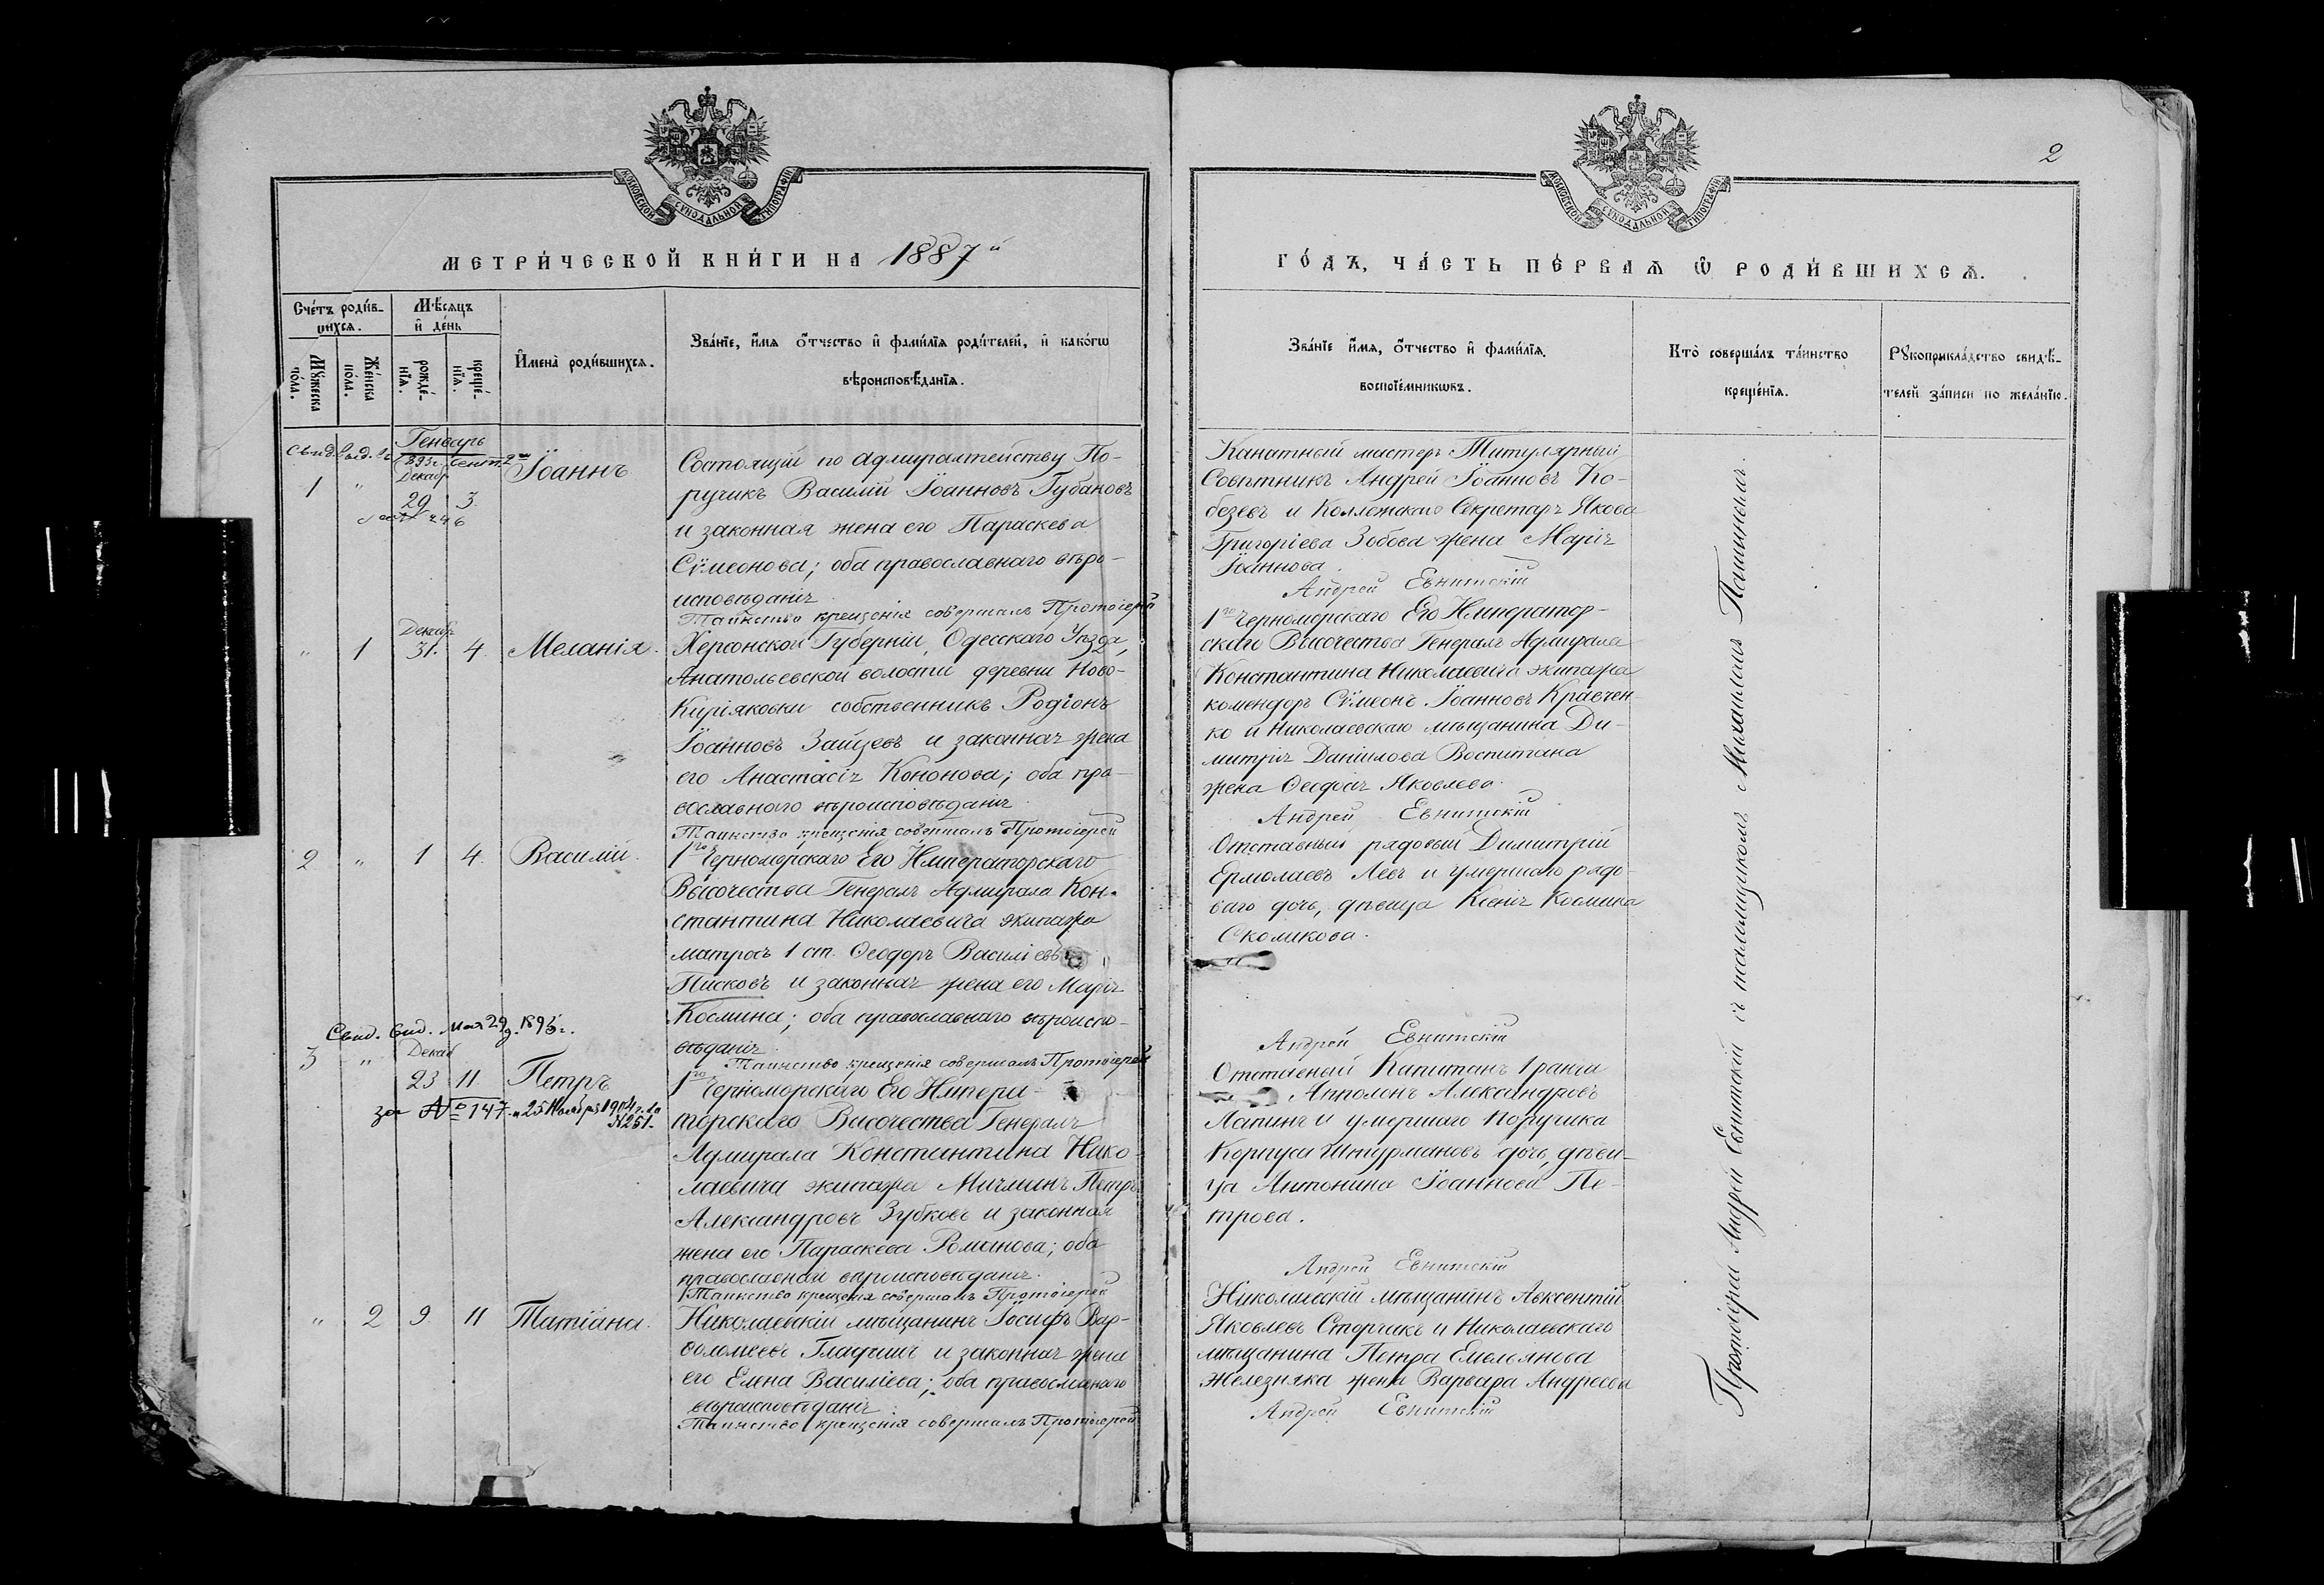 МОСКОВСКОЙ СѴНОДАЛЬНОЙ ТИПОГРАФІИ
МЕТРИ́ЧЕСКОЙ КНИ́ГИ НА 1887й
Сче́тъ роди́в-
шихсѧ.
Мѣ́сѧцъ
и҆ де́нь
Мꙋ́жеска
по́ла.
Же́нска
по́ла.
рожде́-
нїѧ.
креще́-
нїѧ.
И҆мена̀ роди́вшихсѧ.
Зва́нїе, и҆́мѧ ѻ҆́тчество и҆ фами́лїѧ роди́телей, и҆ како́гѡ
вѣроисповѣ́данїѧ.
Генварь
Свид. выд.
1893г. Сент. 2
Декабр
1 " 29 3. Іоаннъ
Состоящій по адмиралтейству По-
ручикъ Василій Іоанновъ Губановъ
и законная жена его Параскева
Сѵмеонова; оба православнаго вѣро-
исповѣданія.
Таинство крещенія совершалъ Протоіерей
Декабр
" 1 31. 4. Меланія.
Херсонской Губерніи, Одесскаго Уѣзда,
Анатольевской волости деревни Ново-
Киріяковки собственникъ Родіонъ
Іоанновъ Зайцевъ и законная жена
его Анастасія Кононова; оба пра-
вославнаго вѣроисповѣданія.
Таинство крещенія совершалъ Протоіерей
2 " 1 4. Василій.
1го Черноморскаго Его Императорскаго
Высочества Генералъ Адмирала Кон-
стантина Николаевича экипажа
матросъ 1 ст. Ѳеодоръ Василіевъ
Писковъ и законная жена его Марія
Космина; оба православнаго вѣроиспо-
вѣданія.
Таинство крещенія совершалъ Протоіерей
Свид. выд. Мая 29д. 1895г.
3 " Декаб
23 11. Петръ
за № 147. и 25 Ноября 1904г. за
№251.
1го Черноморскаго Его Импера-
торскаго Высочества Генералъ
Адмирала Константина Нико-
лаевича экипажа Мичманъ Петръ
Александровъ Зубковъ и законная
жена его Параскева Романова; оба
православнаго вѣроисповѣданія.
Таинство крещенія совершалъ Протоіерей
" 2 9 11 Татіана.
Николаевскій мѣщанинъ Іосифъ Вар-
ѳоломеевъ Гладышъ и законная жена
его Елена Василіева; оба православнаго
вѣроисповѣданія.
Таинство крещенія совершалъ Протоіерей
2
МОСКОВСКОЙ СѴНОДАЛЬНОЙ ТИПОГРАФІИ
ГО́ДЪ, ЧА́СТЬ ПЕ́РВАѦ Ѡ҆ РОДИ́ВШИХСѦ.
Зва́нїе и҆́мѧ, ѻ҆́тчество и҆ фами́лїѧ.
воспрїе́мникѡвъ.
Кто̀ соверша́лъ та́инство
креще́нїѧ.
Рꙋкоприкла́дство свидѣ́-
телей за́писи по жела́нїю.
Канатный мастеръ Титулярный
Совѣтникъ Андрей Іоанновъ Ко-
безевъ и Коллежскаго Секретаря Якова
Григоріева Зобова жена Марія
Іоаннова.
Андрей Евнитскій
1го Черноморскаго Его Император-
скаго Высочества Генералъ Адмирала
Константина Николаевича экипажа
комендоръ Сѵмеонъ Іоанновъ Кравчен-
ко и Николаевскаго мѣщанина Ди-
митрія Даніилова Воспитана
жена Ѳеодосія Яковлева.
Андрей Евнитскій
Отставный рядовый Димитрій
Ермолаевъ Левъ и умершаго рядо-
ваго дочь, дѣвица Ксенія Космина
Скомикова.
Андрей Евнитскій
Отставный Капитанъ 1 ранга
Апполонъ Александровъ
Лапинъ и умершаго Поручика
Корпуса Штурмановъ дочь, дѣви-
ца Антонина Іоаннова Пе-
трова.
Андрей Евнитскій
Николаевскій мѣщанинъ Авксентій
Яковлевъ Сторчакъ и Николаевскаго
мѣщанина Петра Емельянова
Железняка жена Варвара Андреева
Андрей Евнитскій
Протоіерей Андрей Евнитскій съ псаломщикомъ Михаиломъ Пашинымъ.